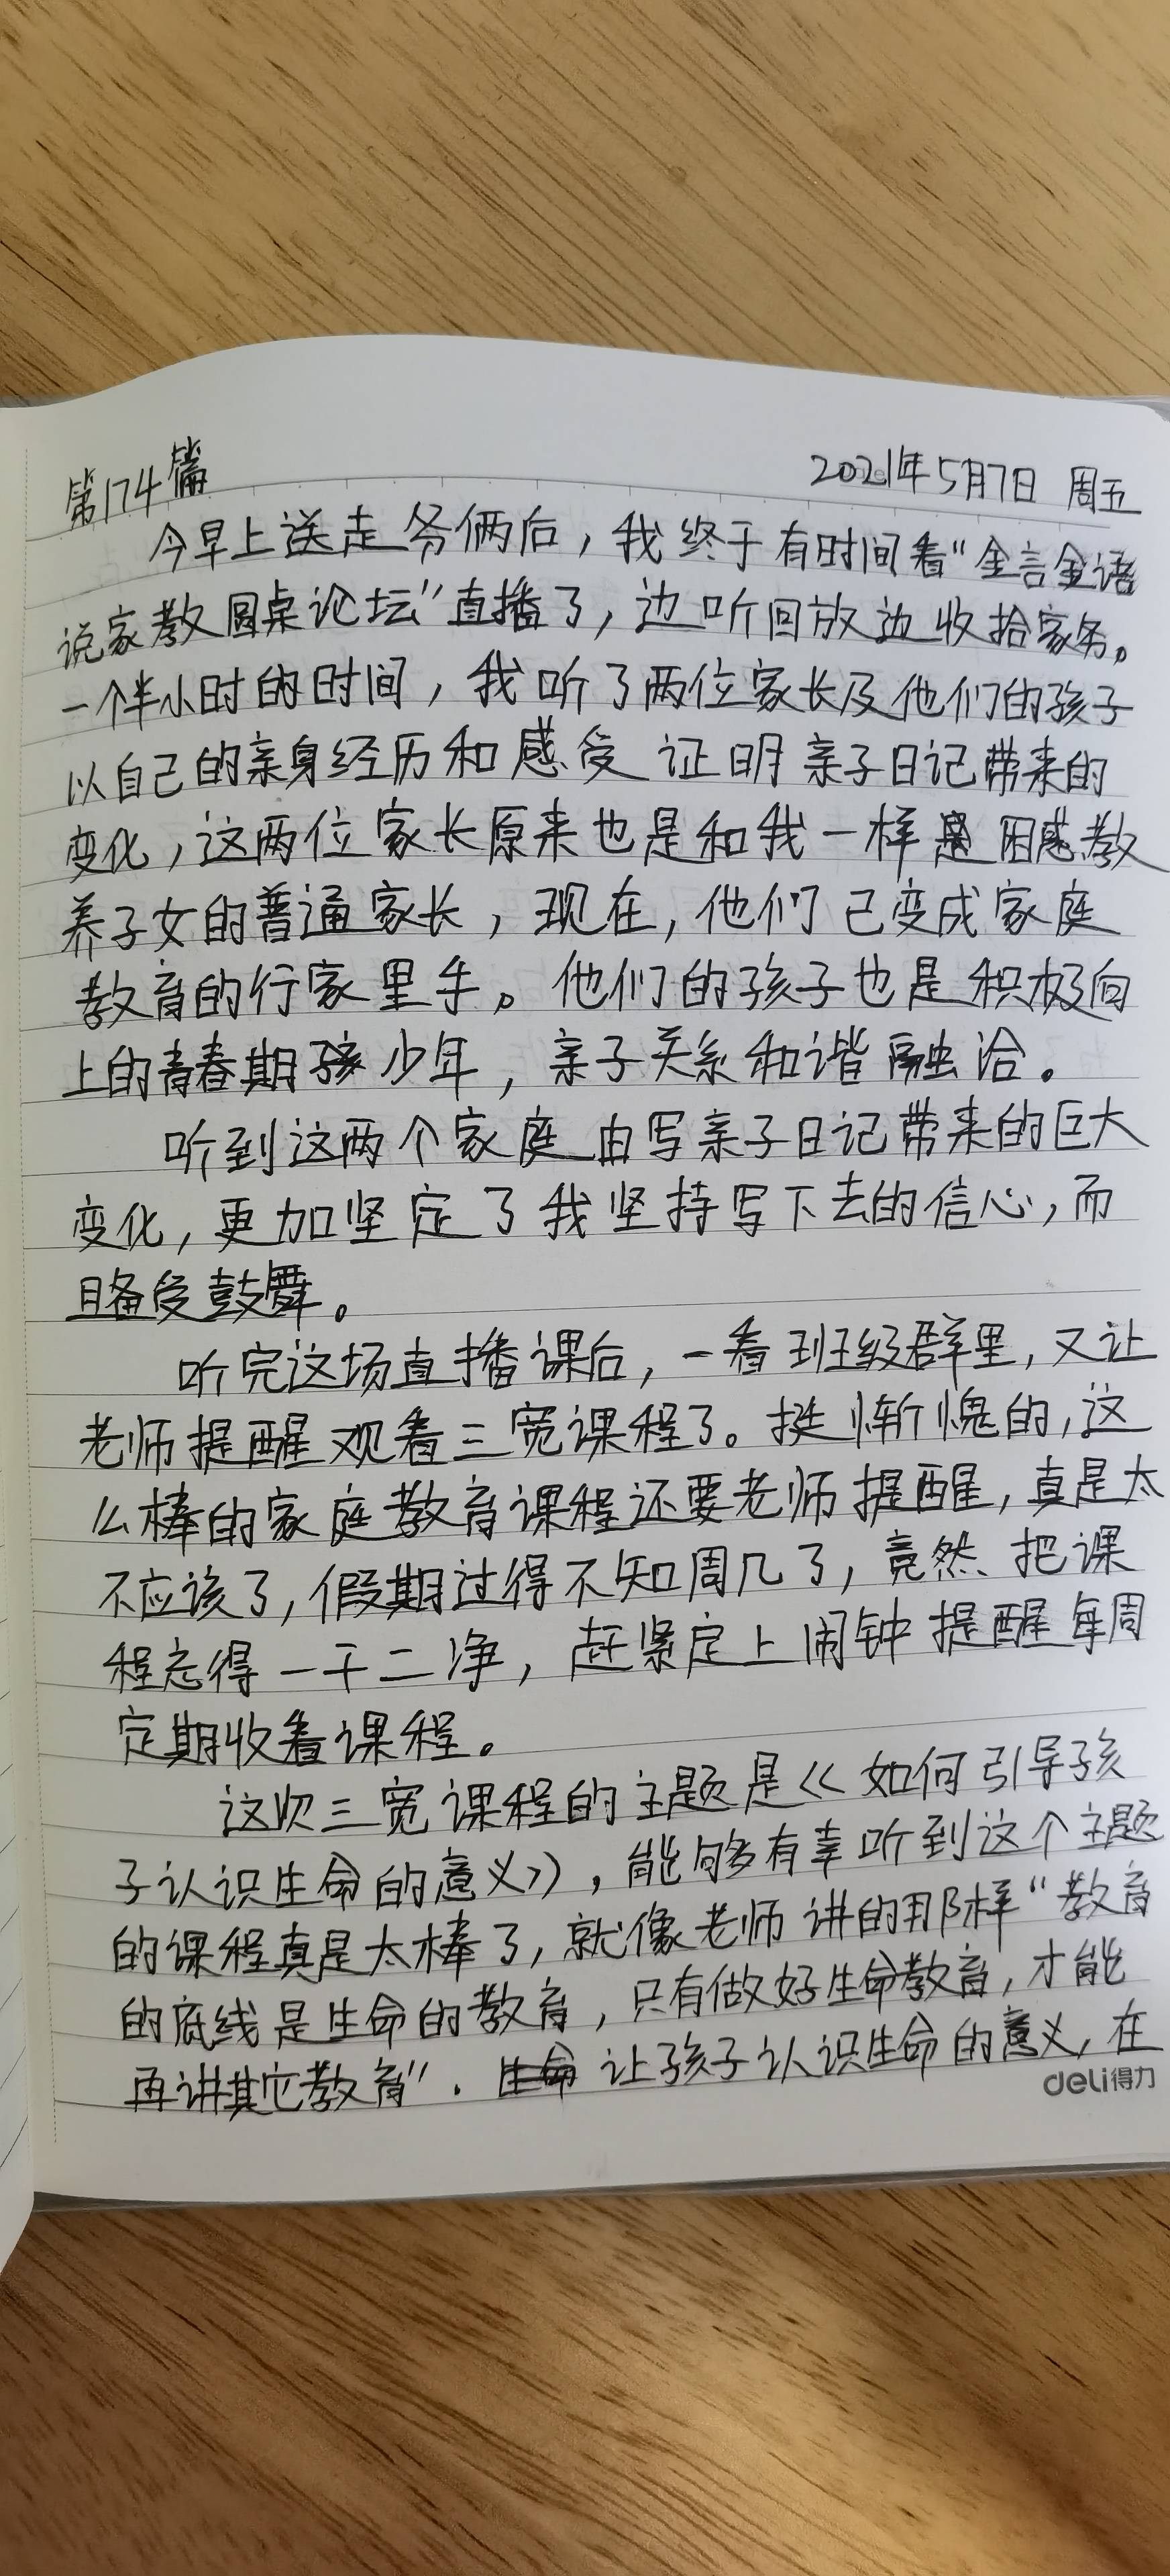 第174篇
2021年5月7日 周五
今早上送走爷俩后，我终于有时间看“金言金语
说家教圆桌论坛”直播了，边听回放边收拾家务。
一个半小时的时间，我听了两位家长及他们的孩子
以自己的亲身经历和感受 证明亲子日记带来的
变化，这两位家长原来也是和我一样是困惑教
养子女的普通家长，现在，他们已变成家庭
教育的行家里手。他们的孩子也是积极向
上的青春期孩少年，亲子关系和谐融洽。
听到这两个家庭由写亲子日记带来的巨大
变化，更加坚定了我坚持写下去的信心，而
且备受鼓舞。
听完这场直播课后，一看班级群里，又让
老师提醒观看三宽课程了。挺惭愧的，这
么棒的家庭教育课程还要老师提醒，真是太
不应该了，假期过得不知周几了，竟然把课
程忘得一干二净，赶紧定上闹钟提醒每周
定期收看课程。
这次三宽课程的主题是《如何引导孩
子认识生命的意义》，能够有幸听到这个主题
的课程真是太棒了，就像老师讲的那样“教育
的底线是生命的教育，只有做好生命教育，才能
再讲其它教育”．生命 让孩子认识生命的意义，在
deli得力